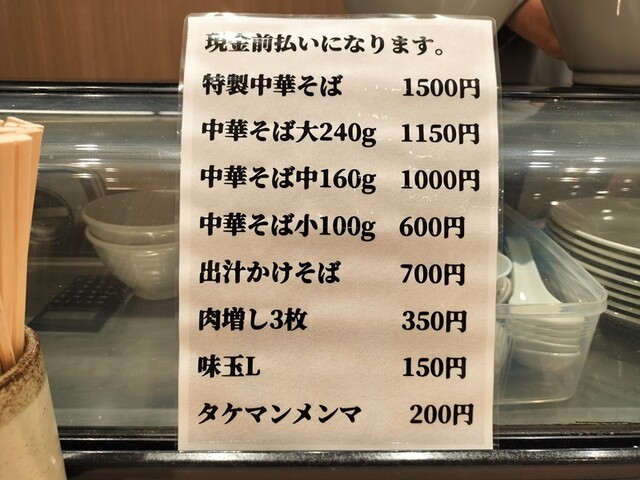 現金前払いになります。
特製中華そば 1500円
中華そば大240g 1150円
中華そば中160g 1000円
中華そば小100g 600円
出汁かけそば 700円
肉増し3枚 350円
味玉L 150円
タケマンメンマ 200円